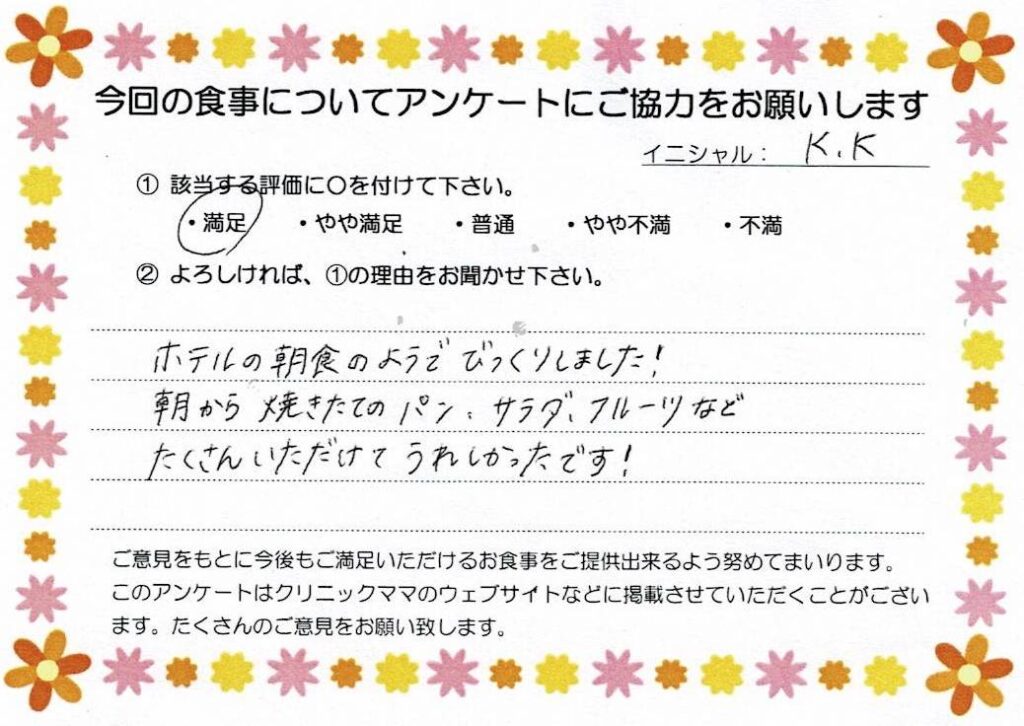 今回の食事についてアンケートにご協力をお願いします
イニシャル： K.K
① 該当する評価に〇を付けて下さい。
・満足 ・やや満足 ・普通 ・やや不満 ・不満
② よろしければ、①の理由をお聞かせ下さい。
ホテルの朝食のようでびっくりしました！
朝から焼きたてのパン、サラダ、フルーツなど
たくさんいただけてうれしかったです！
ご意見をもとに今後もご満足いただけるお食事をご提供出来るよう努めてまいります。
このアンケートはクリニックママのウェブサイトなどに掲載させていただくことがござい
ます。たくさんのご意見をお願い致します。